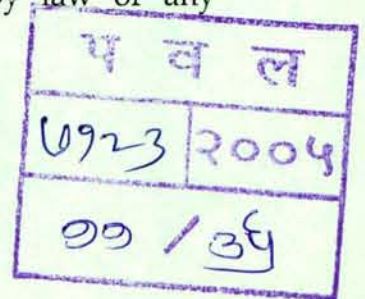 by law or any
प व ल
७१२३ २००५
११ / ३५